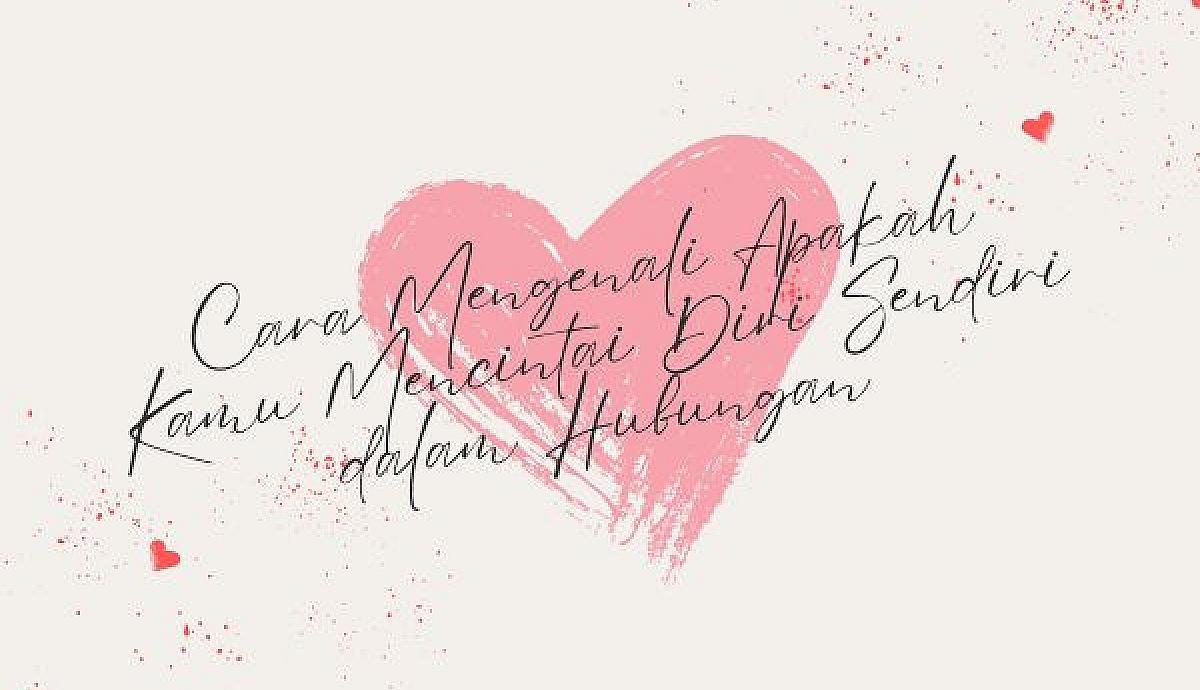 Cara Mengenali Apakah
Kamu Mencintai Diri Sendiri
dalam Hubungan